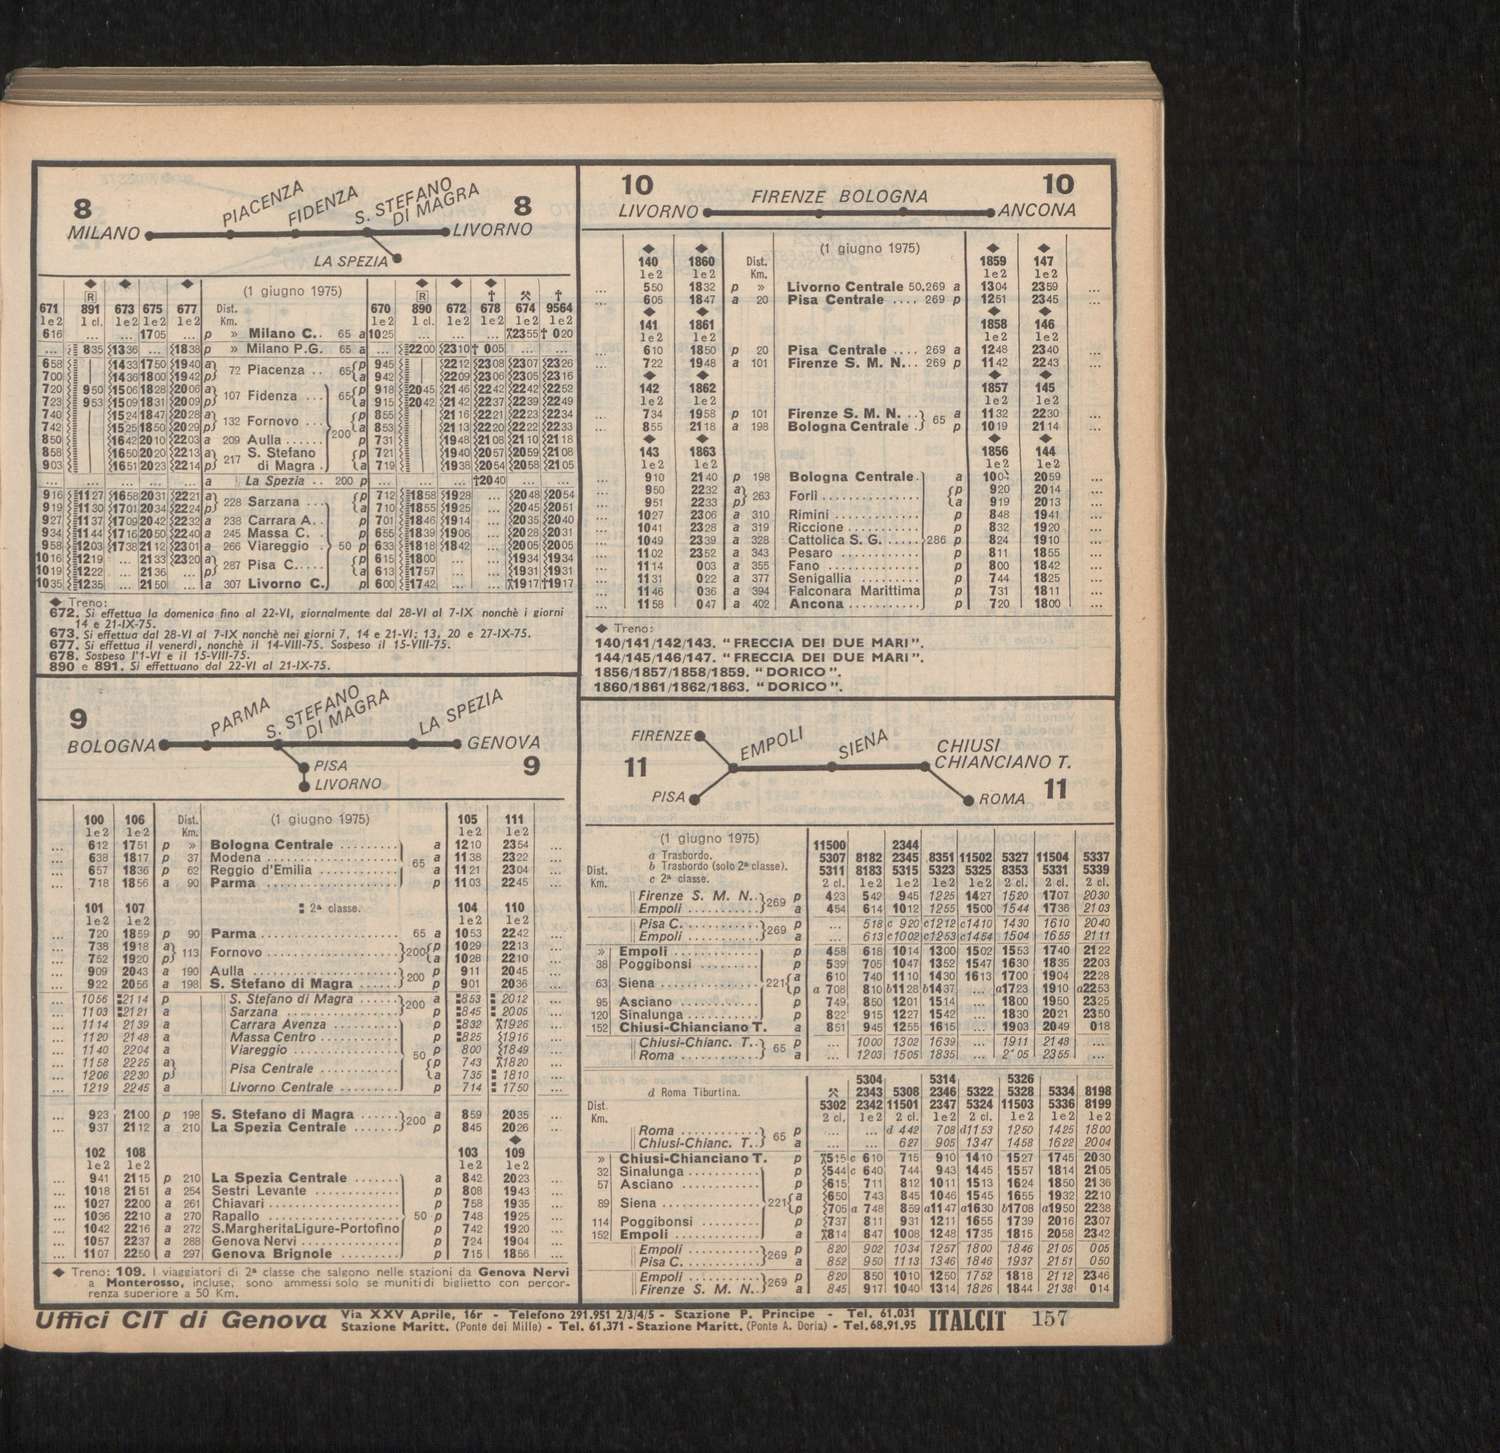 8
MILANO
PIACENZA
FIDENZA
S. STEFANO
DI MAGRA
8
LIVORNO
LA SPEZIA
(1 giugno 1975)
R R
671 891 673 675 677 Dist. 670 890 672 678 674 9564
1e2 1 cl. 1e2 1e2 1e2 Km. 1e2 1 cl. 1e2 1e2 1e2 1e2
616 ... ... 1705 ... p » Milano C.. 65 a 1025 ... ... ... 2355 † 020
... 835 1336 ... 1838 p » Milano P.G. 65 a ... 2200 2310 † 005 ... ...
658 1433 1750 1940 a 72 Piacenza .. 65 p 945 2212 2308 2307 2326
700 1436 1800 1942 p a 942 2209 2306 2305 2316
720 950 1506 1828 2006 a 107 Fidenza ... 65 p 918 2045 2146 2242 2242 2252
723 953 1509 1831 2009 p a 915 2042 2142 2237 2239 2249
740 1524 1847 2028 a 132 Fornovo ... p 855 2116 2221 2223 2234
742 1525 1850 2029 p 200 a 853 2113 2220 2222 2233
850 1642 2010 2203 a 209 Aulla ...... p 731 1948 2108 2110 2118
858 1650 2020 2213 a 217 S. Stefano p 721 1940 2057 2059 2108
903 1651 2023 2214 p di Magra . a 719 1938 2054 2058 2105
... ... ... ... ... a La Spezia .. 200 p ... ... ... †2040 ... ...
916 1127 1658 2031 2221 a 228 Sarzana ... p 712 1858 1928 ... 2048 2054
919 1130 1701 2034 2224 p a 710 1855 1925 ... 2045 2051
927 1137 1709 2042 2232 a 238 Carrara A.. p 701 1846 1914 ... 2035 2040
934 1144 1716 2050 2240 a 245 Massa C. . p 655 1839 1906 ... 2028 2031
958 1203 1738 2112 2301 a 266 Viareggio . 50 p 633 1818 1842 ... 2005 2005
1016 1219 ... 2133 2320 a 287 Pisa C..... p 615 1800 ... ... 1934 1934
1019 1222 ... 2136 p a 613 1757 ... ... 1931 1931
1035 1235 ... 2150 ... a 307 Livorno C. p 600 1742 ... ... 1917 †1917
◆ Treno:
672. Si effettua la domenica fino al 22-VI, giornalmente dal 28-VI al 7-IX nonchè i giorni
14 e 21-IX-75.
673. Si effettua dal 28-VI al 7-IX nonchè nei giorni 7, 14 e 21-VI; 13, 20 e 27-IX-75.
677. Si effettua il venerdì, nonchè il 14-VIII-75. Sospeso il 15-VIII-75.
678. Sospeso l'1-VI e il 15-VIII-75.
890 e 891. Si effettuano dal 22-VI al 21-IX-75.
9
BOLOGNA
PARMA
S. STEFANO
DI MAGRA
LA SPEZIA
GENOVA
PISA
LIVORNO
9
100 106 Dist. (1 giugno 1975) 105 111
1e2 1e2 Km. 1e2 1e2
... 612 1751 p » Bologna Centrale ......... a 1210 2354 ...
... 638 1817 p 37 Modena .................... 65 a 1138 2322 ...
... 657 1836 p 62 Reggio d'Emilia ........... a 1121 2304 ...
... 718 1856 a 90 Parma ..................... p 1103 2245 ...
101 107 2ª classe. 104 110
1e2 1e2 1e2 1e2
... 720 1859 p 90 Parma ..................... 65 a 1053 2242 ...
... 738 1918 a 113 Fornovo ................... 200 p 1029 2213 ...
... 752 1920 p a 1028 2210 ...
... 909 2043 a 190 Aulla ..................... 200 p 911 2045 ...
... 922 2056 a 198 S. Stefano di Magra ...... p 901 2036 ...
... 1056 2114 p S. Stefano di Magra ...... 200 a 853 2012 ...
... 1103 2121 a Sarzana .................. p 845 2005 ...
... 1114 2139 a Carrara Avenza ........... p 832 1926 ...
... 1120 2148 a Massa Centro ............. p 825 1916 ...
... 1140 2204 a Viareggio ................ 50 p 800 1849 ...
... 1158 2225 a Pisa Centrale ............ p 743 1820 ...
... 1206 2230 p a 735 1810 ...
... 1219 2245 a Livorno Centrale ......... p 714 1750 ...
... 923 2100 p 198 S. Stefano di Magra ...... 200 a 859 2035 ...
... 937 2112 a 210 La Spezia Centrale ....... p 845 2026 ...
◆
102 108 103 109
1e2 1e2 1e2 1e2
... 941 2115 p 210 La Spezia Centrale ....... a 842 2023 ...
... 1018 2151 a 254 Sestri Levante ............ p 808 1943 ...
... 1027 2200 a 261 Chiavari .................. p 758 1935 ...
... 1036 2210 a 270 Rapallo ................... 50 p 748 1925 ...
... 1042 2216 a 272 S.MargheritaLigure-Portofino p 742 1920 ...
... 1057 2237 a 288 Genova Nervi .............. p 724 1904 ...
... 1107 2250 a 297 Genova Brignole ......... p 715 1856 ...
◆ Treno: 109. I viaggiatori di 2ª classe che salgono nelle stazioni da Genova Nervi
a Monterosso, incluse, sono ammessi solo se muniti di biglietto con percor-
renza superiore a 50 Km.
10
LIVORNO
FIRENZE BOLOGNA
10
ANCONA
◆ ◆ (1 giugno 1975) ◆ ◆
140 1860 Dist. 1859 147
1e2 1e2 Km. 1e2 1e2
... 550 1832 p » Livorno Centrale 50.269 a 1304 2359 ...
... 605 1847 a 20 Pisa Centrale .... 269 p 1251 2345 ...
◆ ◆ ◆ ◆
141 1861 1858 146
1e2 1e2 1e2 1e2
... 610 1850 p 20 Pisa Centrale .... 269 a 1248 2340 ...
... 722 1948 a 101 Firenze S. M. N... 269 p 1142 2243 ...
◆ ◆ ◆ ◆
142 1862 1857 145
1e2 1e2 1e2 1e2
... 734 1958 p 101 Firenze S. M. N. .. 65 a 1132 2230 ...
... 855 2118 a 198 Bologna Centrale . p 1019 2114 ...
◆ ◆ ◆ ◆
143 1863 1856 144
1e2 1e2 1e2 1e2
... 910 2140 p 198 Bologna Centrale. a 2059 ...
... 950 2232 a 263 Forlì ............. p 920 2014 ...
... 951 2233 p a 919 2013 ...
... 1027 2306 a 310 Rimini ............ p 848 1941 ...
... 1041 2328 a 319 Riccione .......... p 832 1920 ...
... 1049 2339 a 328 Cattolica S. G. ..... 286 p 824 1910 ...
... 1102 2352 a 343 Pesaro ............ p 811 1855 ...
... 1114 003 a 355 Fano .............. p 800 1842 ...
... 1131 022 a 377 Senigallia ......... p 744 1825 ...
... 1146 036 a 394 Falconara Marittima p 731 1811 ...
... 1158 047 a 402 Ancona ........... p 720 1800 ...
◆ Treno:
140/141/142/143. “ FRECCIA DEI DUE MARI ”.
144/145/146/147. “ FRECCIA DEI DUE MARI ”.
1856/1857/1858/1859. “ DORICO ”.
1860/1861/1862/1863. “ DORICO ”.
FIRENZE
EMPOLI
SIENA
CHIUSI
CHIANCIANO T.
11
PISA
ROMA
11
(1 giugno 1975) 11500 2344
a Trasbordo. 5307 8182 2345 8351 11502 5327 11504 5337
b Trasbordo (solo 2ª classe). 5311 8183 5315 5323 5325 8353 5331 5339
c 2ª classe. 2 cl. 1e2 1e2 1e2 1e2 2 cl. 2 cl. 2 cl.
Dist.
Km.
Firenze S. M. N.. 269 p 423 542 945 1225 1427 1520 1707 2030
Empoli .......... a 454 614 1012 1255 1500 1544 1736 2103
Pisa C. .......... 269 p ... 518 c 920 c1212 c1410 1430 1610 2040
Empoli .......... a ... 613 c1002 c1253 c1454 1504 1655 2111
» Empoli ............. p 458 618 1014 1300 1502 1553 1740 2122
38 Poggibonsi ......... p 539 705 1047 1352 1547 1630 1835 2203
63 Siena .............. 221 a 610 740 1110 1430 1613 1700 1904 2228
p a 708 810 b1128 b1437 ... a1723 1910 a2253
95 Asciano ............ p 749 850 1201 1514 ... 1800 1950 2325
120 Sinalunga .......... p 822 915 1227 1542 ... 1830 2021 2350
152 Chiusi-Chianciano T. a 851 945 1255 1615 ... 1903 2049 018
Chiusi-Chianc. T.. 65 p ... 1000 1302 1639 ... 1911 2148 ...
Roma ........... a ... 1203 1505 1835 ... 2355 ...
5304 5314 5326
d Roma Tiburtina. 2343 5308 2346 5322 5328 5334 8198
Dist. 5302 2342 11501 2347 5324 11503 5336 8199
Km. 2 cl. 1e2 2 cl. 1e2 2 cl. 1e2 1e2 1e2
Roma ........... 65 p ... ... d 442 708 d1153 1250 1425 1800
Chiusi-Chianc. T.. a ... ... 627 905 1347 1458 1622 2004
» Chiusi-Chianciano T. p 515 c 610 715 910 1410 1527 1745 2030
32 Sinalunga ........... p 544 c 640 744 943 1445 1557 1814 2105
57 Asciano ............. p 615 711 812 1011 1513 1624 1850 2136
89 Siena ............... 221 a 650 743 845 1046 1545 1655 1932 2210
p 705 a 748 859 a1147 a1630 b1708 a1950 2238
114 Poggibonsi ......... p 737 811 931 1211 1655 1739 2016 2307
152 Empoli ............. a 814 847 1008 1248 1735 1815 2058 2342
Empoli .......... 269 p 820 902 1034 1257 1800 1846 2105 005
Pisa C. .......... a 852 950 1113 1346 1846 1937 2151 050
Empoli .......... 269 p 820 850 1010 1250 1752 1818 2112 2346
Firenze S. M. N.. a 845 917 1040 1314 1826 1844 2138 014
Uffici CIT di Genova
Via XXV Aprile, 16r - Telefono 291.951 2/3/4/5 - Stazione P. Principe - Tel. 61.031
Stazione Maritt. (Ponte dei Mille) - Tel. 61.371 - Stazione Maritt. (Ponte A. Doria) - Tel. 68.91.95
ITALCIT
157